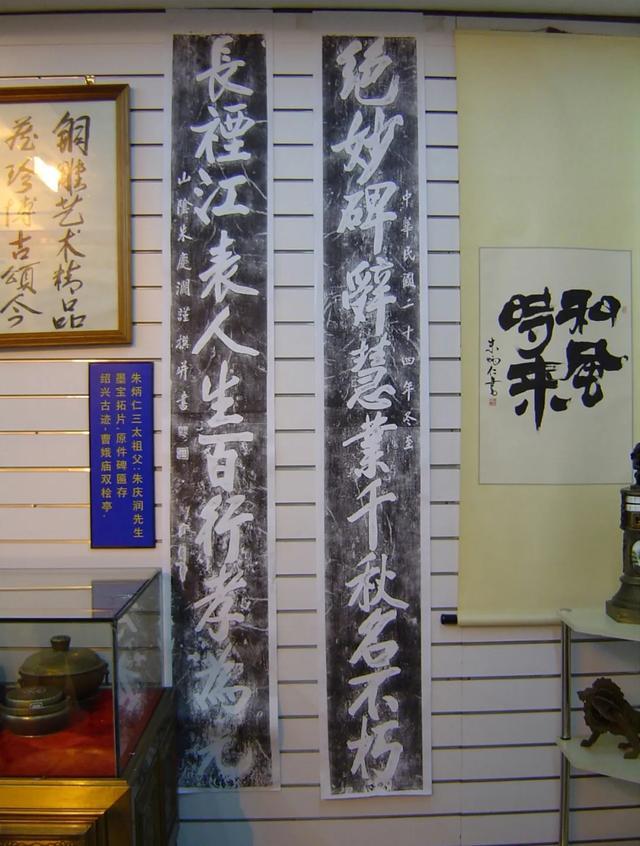 和風
時来
朱炳仁書
絕妙碑辭慧業千秋名不朽
中華民國二十四年冬至
長禋江表人生百行孝為元
山陰朱慶瀾謹撰并書
铜雕艺术精品
珍博古颂今
朱炳仁三太祖父:朱庆润先生
墨宝拓片,原件碑匾存
绍兴古迹,曹娥庙双桧亭.